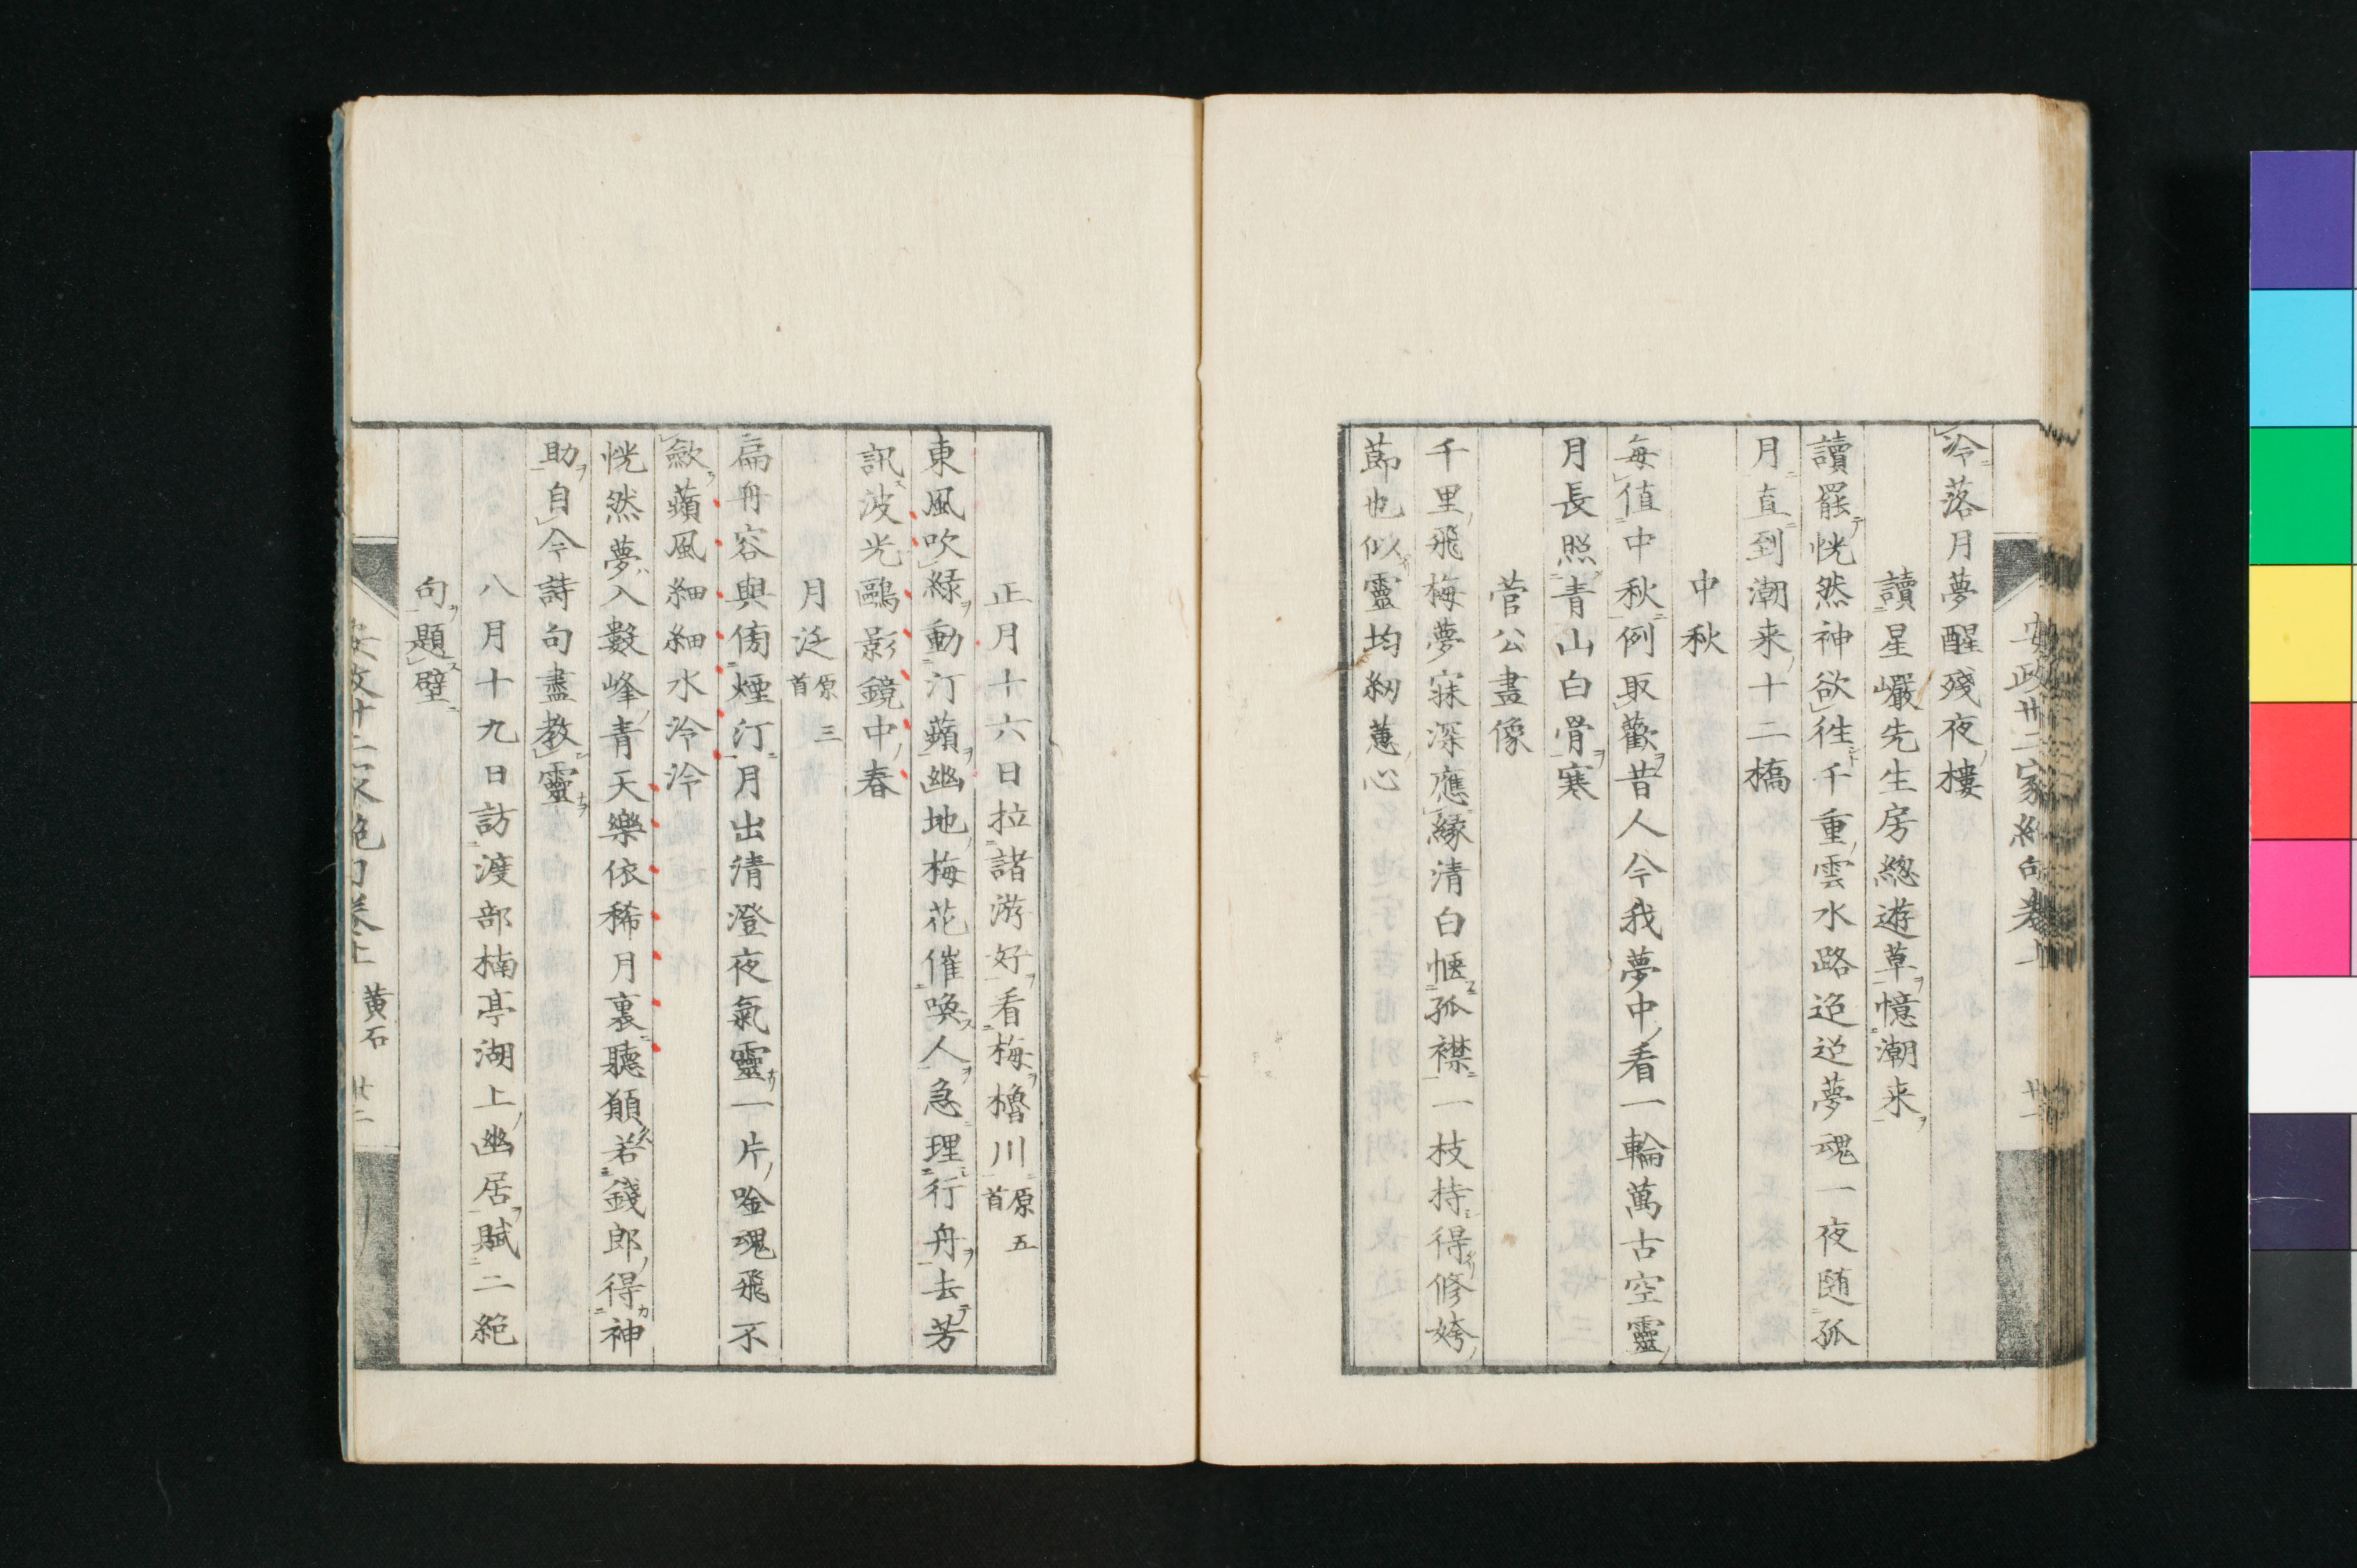 安政廿二家絶句卷上
廿一
冷落月夢醒殘夜樓
讀星巖先生房總遊草憶潮来
讀罷恍然神欲徃千重雲水路迢迢夢魂一夜随孤
月直到潮来十二橋
中秋
每值中秋例取歡昔人今我夢中看一輪萬古空靈
月長照青山白骨寒
菅公畫像
千里飛梅夢寐深應緣清白愜孤襟一枝持得修姱
節也似靈均紉蕙心
正月十六日拉諸游好看梅櫓川原五首
東風吹綠動汀蘋幽地梅花催喚人急理行舟去芳
訊波光鷗影鏡中春
月泛原三首
扁舟容與傍煙汀月出清澄夜氣靈一片唫魂飛不
歛蘋風細細水泠泠
恍然夢入數峰青天樂依稀月裏聽顧若錢郎得神
助自今詩句盡教靈
八月十九日訪渡部楠亭湖上幽居賦二絶
句題壁
安政廿二家絶句卷上
黄石
廿二